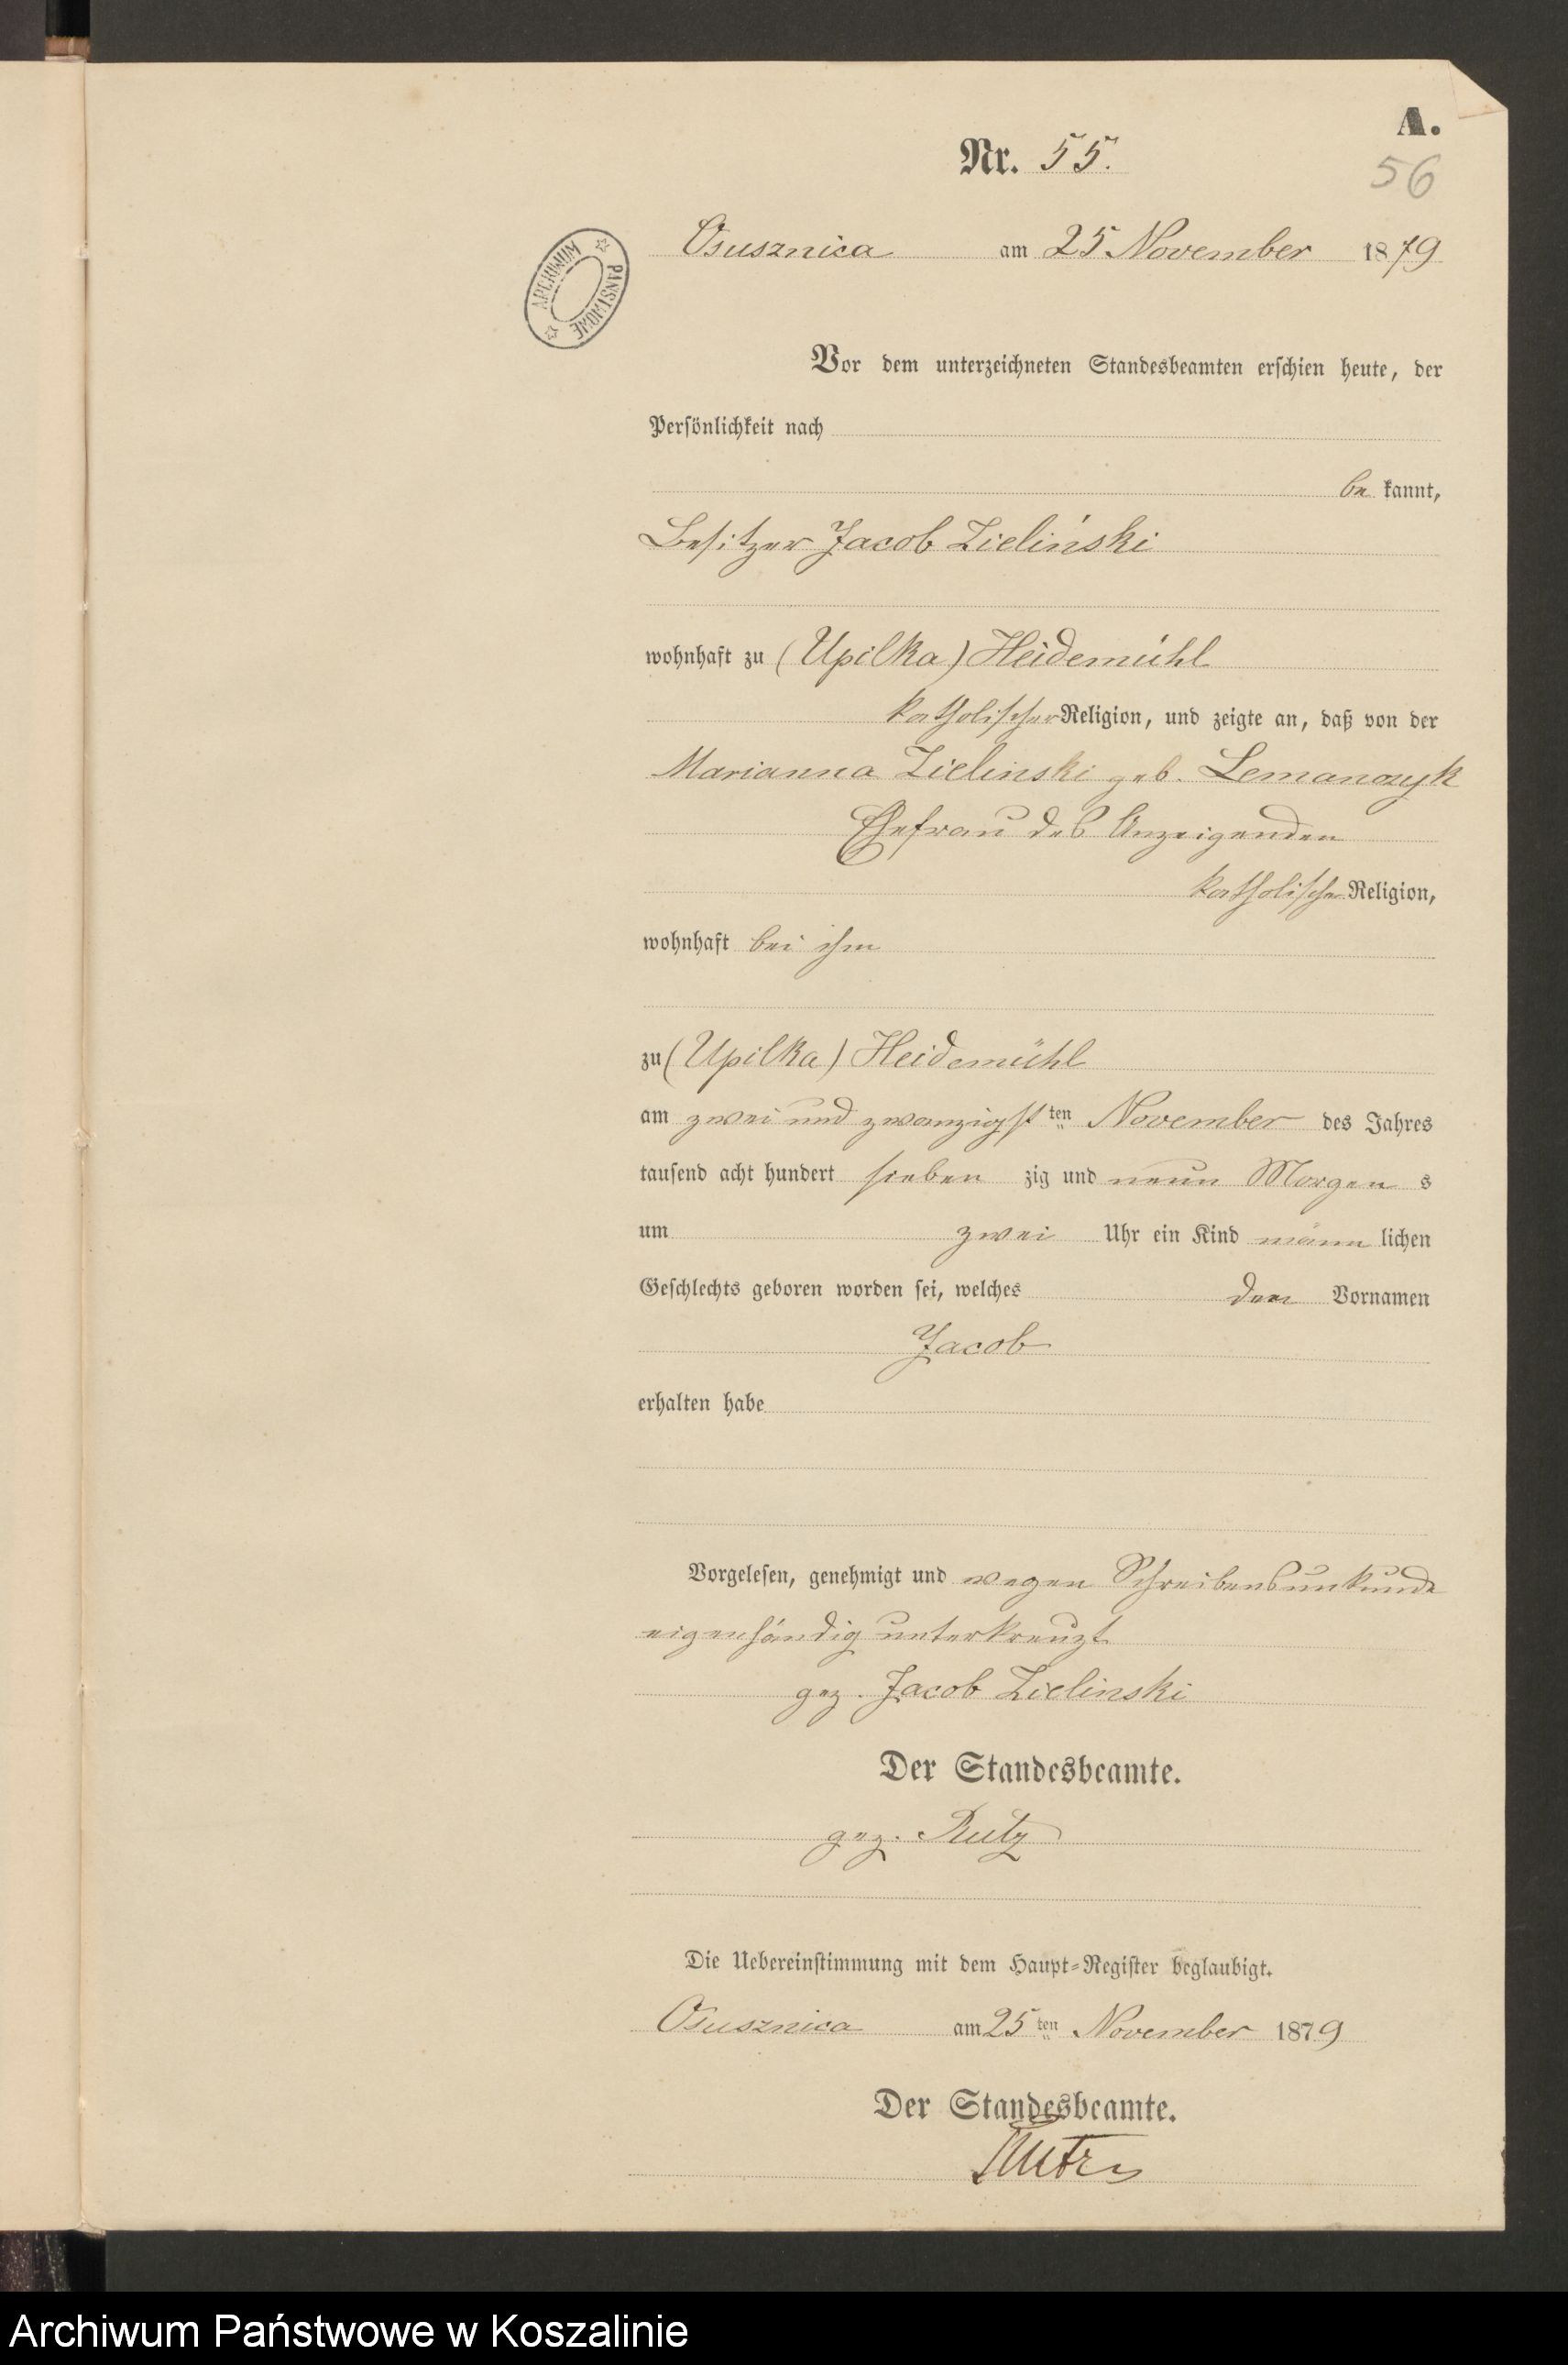 A.
Nr. 55.
56
Osusznica am 25 November 1879
ARCHIWUM PAŃSTWOWE
Vor dem unterzeichneten Standesbeamten erschien heute, der
Persönlichkeit nach
be kannt,
Besitzer Jacob Zieliński
wohnhaft zu (Upilka) Heidemühl
katholischer Religion, und zeigte an, daß von der
Marianna Zielinski geb. Lemanczyk
Ehefrau des Anzeigenden
katholischer Religion,
wohnhaft bei ihm
zu (Upilka) Heidemühl
am zwei und zwanzigst ten November des Jahres
tausend acht hundert sieben zig und neun Morgen s
um zwei Uhr ein Kind männ lichen
Geschlechts geboren worden sei, welches den Vornamen
Jacob
erhalten habe
Vorgelesen, genehmigt und wegen Schreibensunkunde
eigenhändig unterkreuzt
gez. Jacob Zielinski
Der Standesbeamte.
gez. Rutz
Die Uebereinstimmung mit dem Haupt-Register beglaubigt.
Osusznica am 25 ten November 1879
Der Standesbeamte.
Rutz
Archiwum Państwowe w Koszalinie